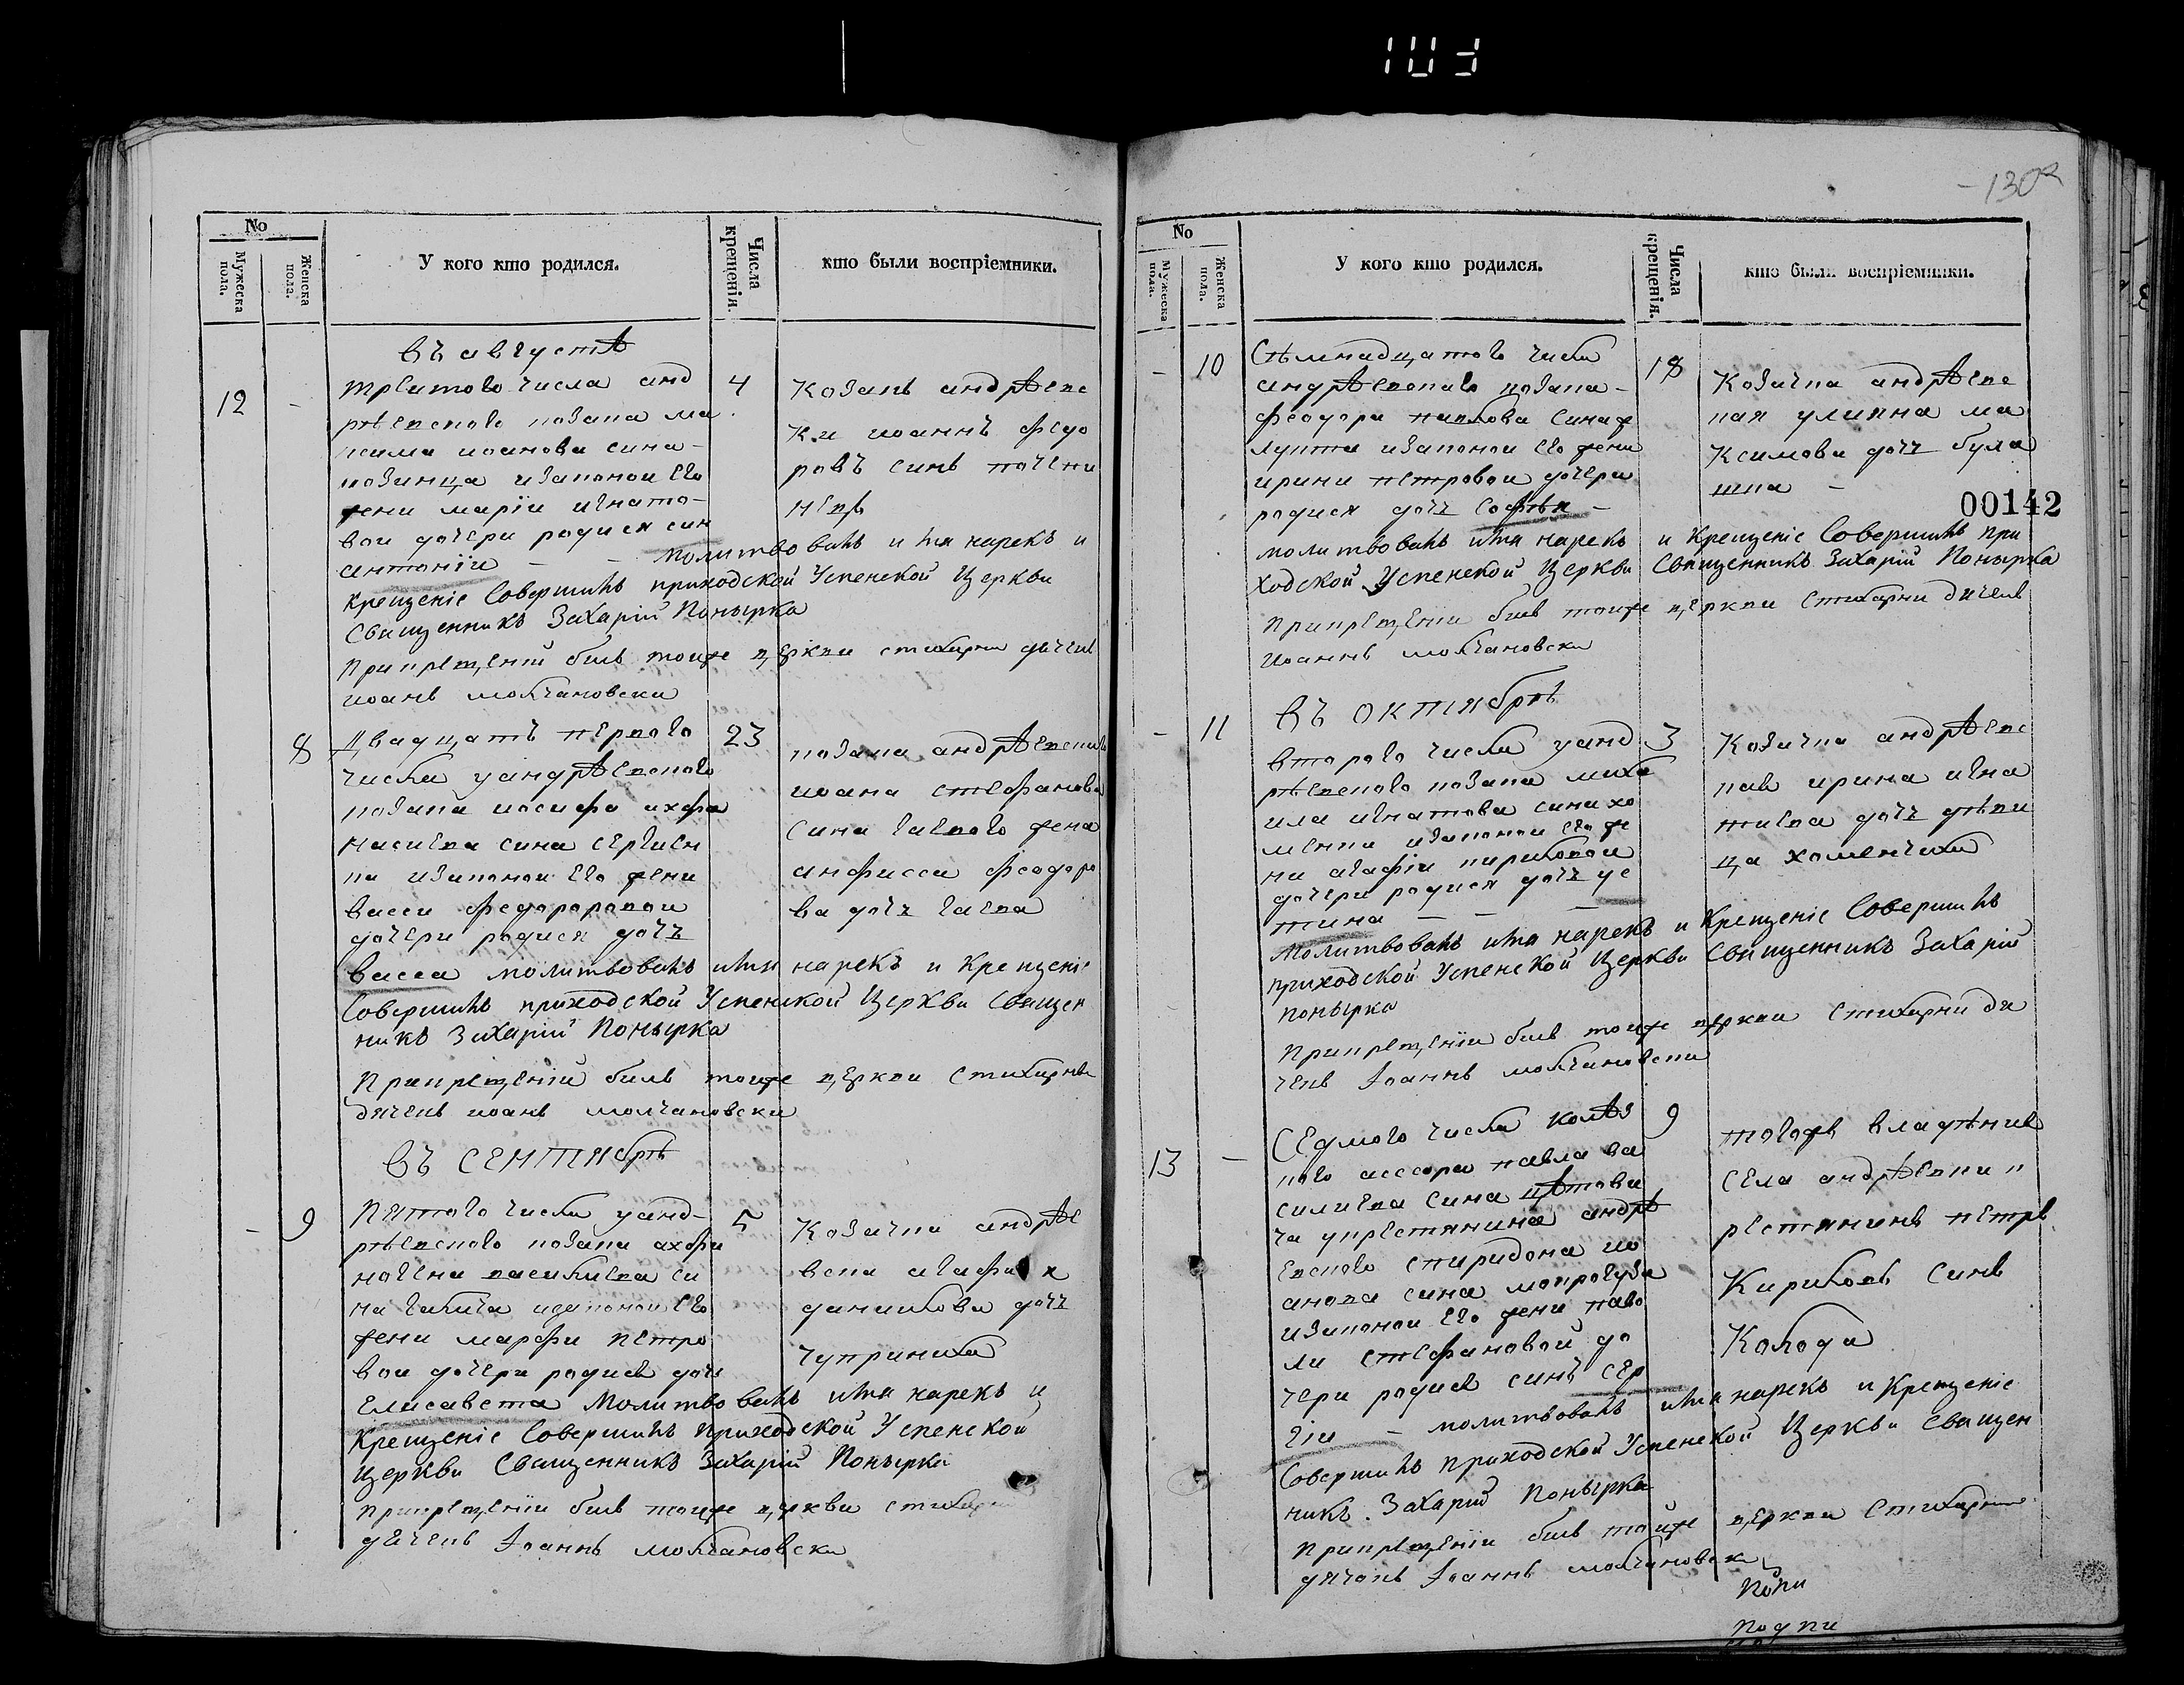 103
130
No
Мужеска пола.
Женска пола.
У кого кто родился.
Числа крещенія.
кто были воспріемники.
въ августѣ
12
-
третого числа анд
рѣевского козака ма
ксима иоанова сина
изаконои его
жени маріи игнато-
вои дочери родися син
антоніи - - молитвовалъ имя нарекъ и
крещеніе Совершилъ приходской Успенской Церкви
Священникъ Захарій Понырка
При крещеніи билъ тоиже церкви стихарни дячекъ
иоанъ молчановски
4
Козакъ андрѣевс
ки иоаннъ федо
ровъ синъ
8
Двадцать первого
числа у андрѣевского
козака иосифа афа
насиева сина сергиен
ка изаконои его жени
васси федороровои
дочери родися дочъ
васса молитвовалъ имя нарекъ и Крещеніе
Совершилъ приходской Успенской Церкви Священ
никъ Захарій Понырка
При крещеніи билъ тоиже церкви стихарни
дячекъ иоанъ молчановски
23
козака андрѣевского
иоана стефанова
сина гаевого жена
анфисса феодоро
ва дочъ гаева
въ сентябрѣ
-
9
Пятого числа у анд-
рѣевского козака афа
василиева си
на изаконои его
жени марфи петро
вои дочери родися дочъ
Елисавета молитвовалъ имя нарекъ и
Крещеніе Совершилъ приходской Успенской
Церкви Священникъ Захарій Понырка
При крещеніи билъ тоиже церкви стихарни
дячекъ Іоаннъ молчановски
5
Козачка андрѣе
вска агафия
данилова дочъ
чуприниха
No
Мужеска пола.
Женска пола.
У кого кто родился.
Числа крещенія.
кто были воспріемники.
-
10
Сѣмнадцатого числа
андрѣевского козака
феодора павлова сина
изаконои его жени
ирини петровои дочери
родися дочъ софия -
молитвовалъ имя нарекъ и Крещеніе Совершилъ при
ходской Успенской Церкви Священникъ Захарій Понырка
При крещеніи билъ тоиже церкви стихарни дячекъ
иоаннъ молчановски
18
Козачка андрѣевс
кая улияна ма
ксимова дочъ була
шка -
00142
въ октябрѣ
-
11
второго числа у анд
рѣевского козака миха
ила игнатова сина хо
менка изаконои его же
ни агафіи кириловои
дочери родися дочъ ус
тина - - -
молитвовалъ имя нарекъ и Крещеніе Совершилъ
приходской Успенской Церкви Священникъ Захарій
Понырка
При крещеніи билъ тоиже церкви стихарни дя
чекъ Іоаннъ молчановски
3
Козачка андрѣевс
кая ирина игна
тиева дочъ дѣви
ца хоменчиха
13
-
Седмого числа колѣз
кого ассора павла ва
силиева сина
ча у крестянина андрѣ
евского спиридона ио
анова сина
изаконои его жени паво
ли стефановой до
чери родися синъ сер
гіи - молитвовалъ имя нарекъ и Крещеніе
Совершилъ приходской Успенской Церкви Священ
никъ Захарій Понырка
При крещеніи билъ тоиже церкви стихарни
дячокъ Іоаннъ молчановски
9
тогожъ владѣния
села андрѣевки к
рестянинъ петръ
Кириловъ синъ
Колода